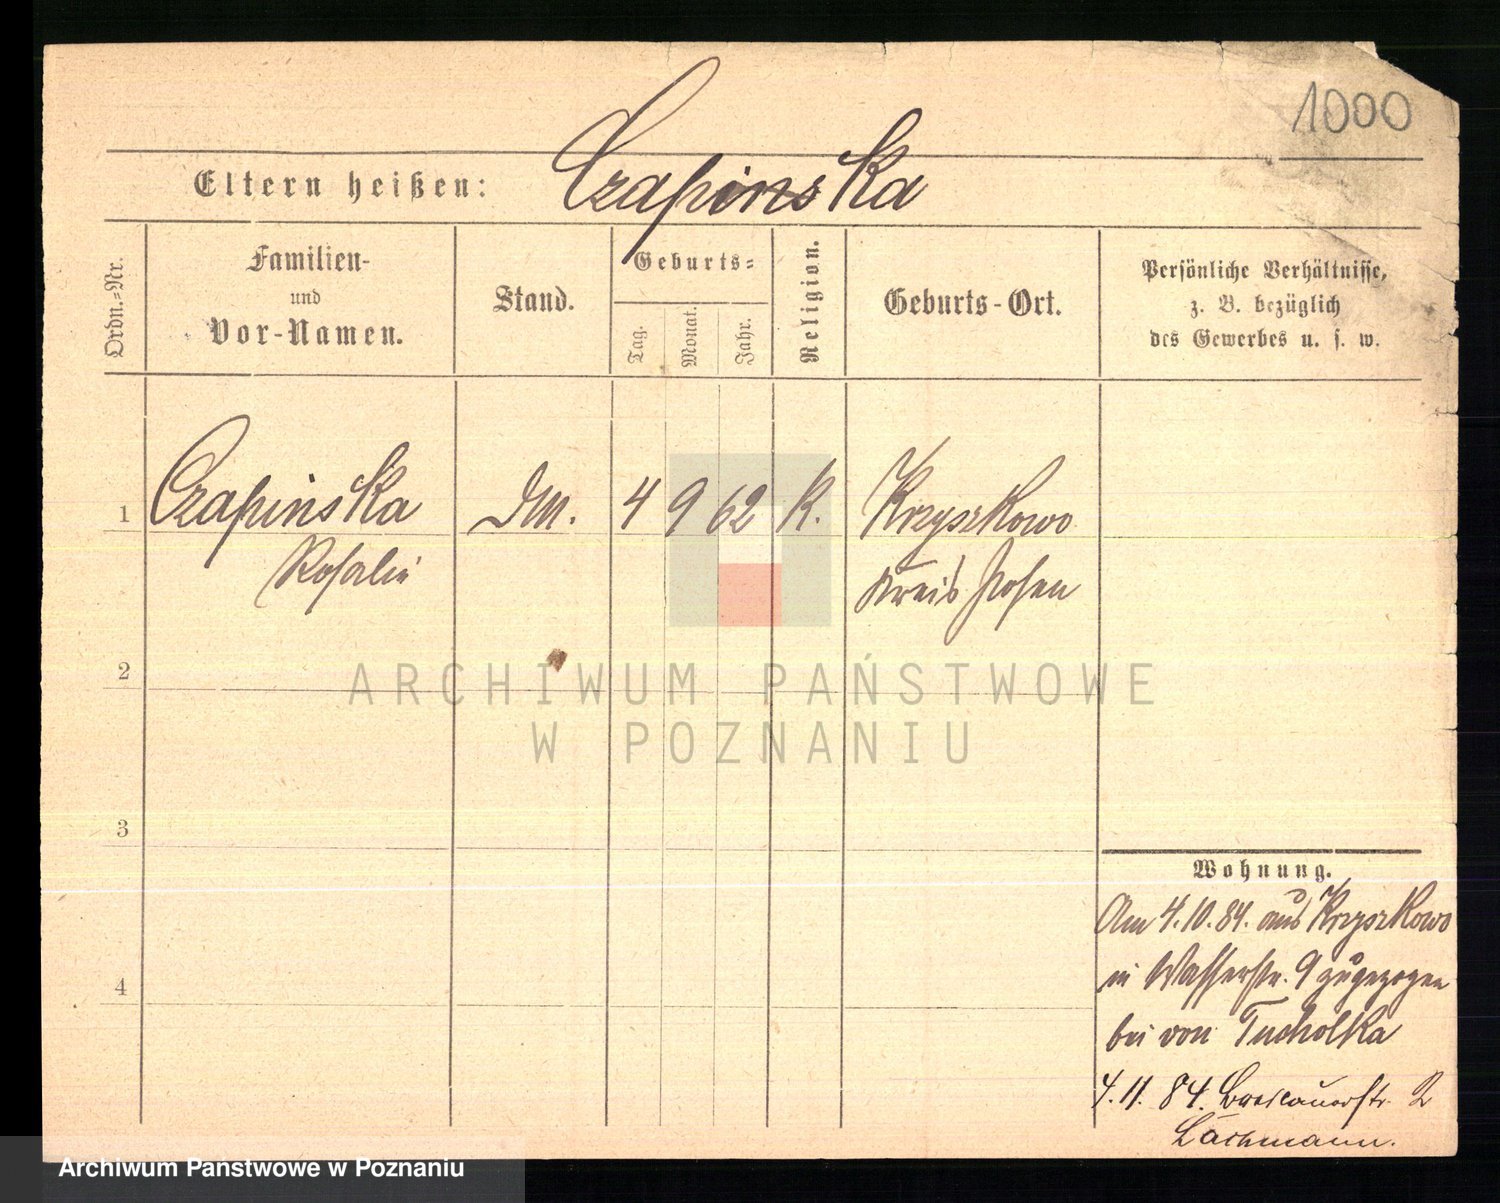 1000
Czapinska
Eltern heißen:
Ordn.=Nr.
Familien-
und
Vor-Namen.
Stand.
Geburts=
Tag.
Monat.
Jahr.
Religion.
Geburts-Ort.
Persönliche Verhältnisse,
z. B. bezüglich
des Gewerbes u. s. w.
1 Czapinska DM. 4 9 62 K. Krzyszkowo
Rosalie Kreis Posen
2
ARCHIWUM PAŃSTWOWE
W POZNANIU
3
Wohnung.
Am 4.10.84. aus Krzyszkowo
in Wasserstr. 9 zugezogen
4
bei von Tucholka
4.11.84. Breslauerstr. 2
Lachmann.
Archiwum Państwowe w Poznaniu